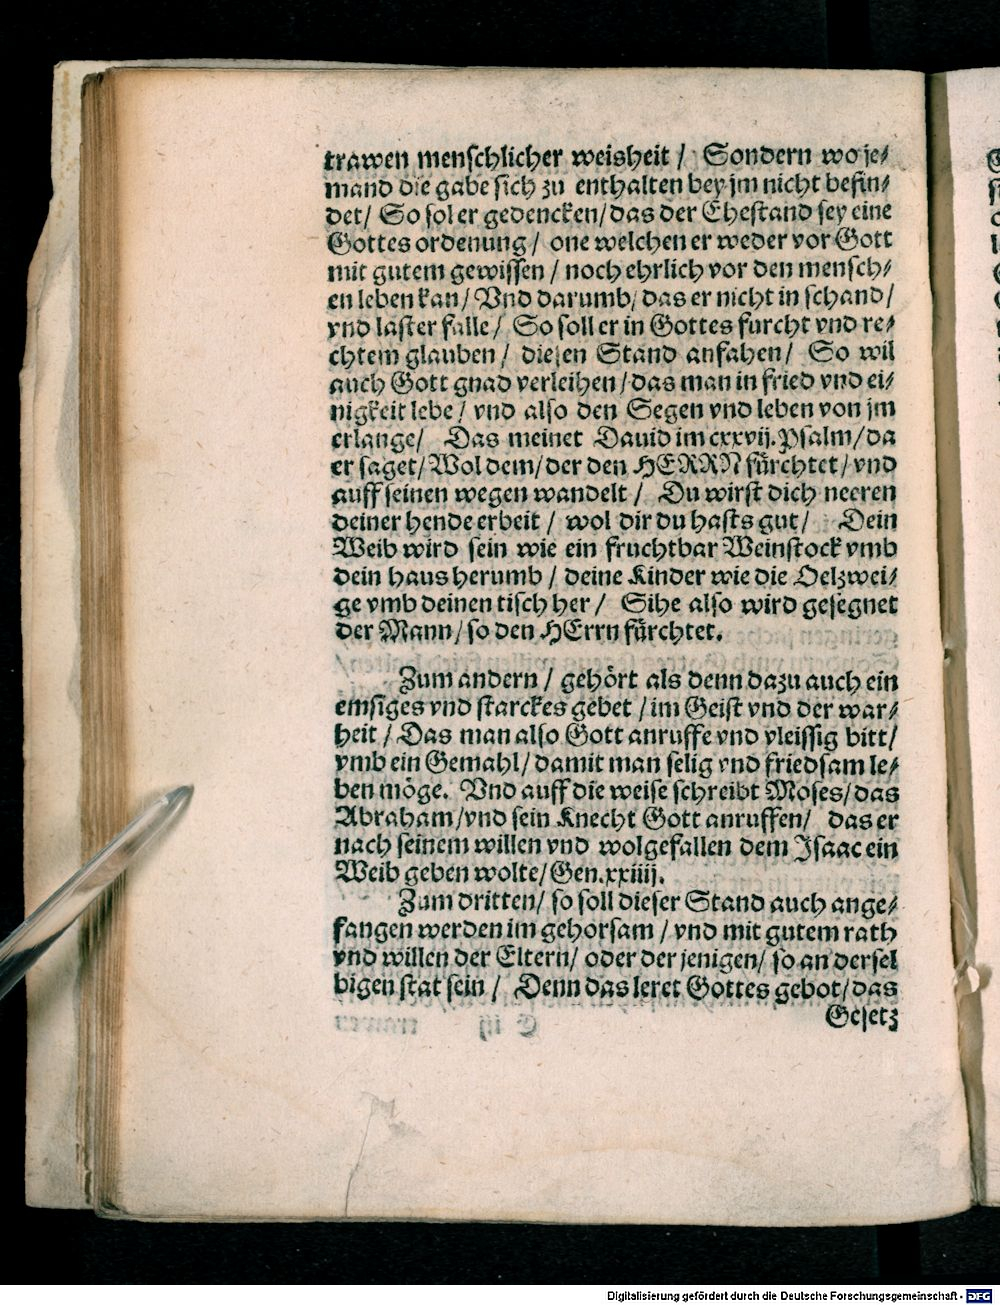 trawen menschlicher weisheit / Sondern wo je⸗
mand die gabe sich zu enthalten bey jm nicht befin⸗
det / So sol er gedencken / das der Ehestand sey eine
Gottes ordenung / one welchen er weder vor Gott
mit gutem gewissen / noch ehrlich vor den mensch⸗
en leben kan / Vnd darumb / das er nicht in schand /
vnd laster falle / So soll er in Gottes furcht vnd re⸗
chtem glauben / diesen Stand anfahen / So wil
auch Gott gnad verleihen / das man in fried vnd ei⸗
nigkeit lebe / vnd also den Segen vnd leben von jm
erlange / Das meinet Dauid im cxxvij. Psalm / da
er saget / Wol dem / der den HERRN fürchtet / vnd
auff seinen wegen wandelt / Du wirst dich neeren
deiner hende erbeit / wol dir du hasts gut / Dein
Weib wird sein wie ein fruchtbar Weinstock vmb
dein haus herumb / deine Kinder wie die Oelzwei⸗
ge vmb deinen tisch her / Sihe also wird gesegnet
der Mann / so den HErrn fürchtet.
Zum andern / gehört als denn dazu auch ein
emsiges vnd starckes gebet / im Geist vnd der war⸗
heit / Das man also Gott anruffe vnd vleissig bitt /
vmb ein Gemahl / damit man selig vnd friedsam le⸗
ben möge. Vnd auff die weise schreibt Moses / das
Abraham / vnd sein Knecht Gott anruffen / das er
nach seinem willen vnd wolgefallen dem Isaac ein
Weib geben wolte / Gen. xxiiij.
Zum dritten / so soll dieser Stand auch ange⸗
fangen werden im gehorsam / vnd mit gutem rath
vnd willen der Eltern / oder der jenigen / so an dersel
bigen stat sein / Denn das leret Gottes gebot / das
Gesetz
Digitalisierung gefördert durch die Deutsche Forschungsgemeinschaft - DFG